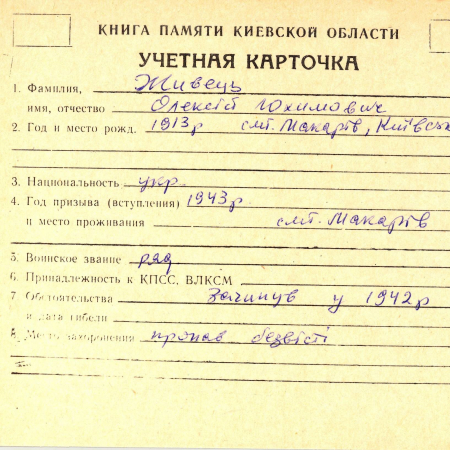 КНИГА ПАМЯТИ КИЕВСКОЙ ОБЛАСТИ
УЧЕТНАЯ КАРТОЧКА
1. Фамилия, Живець
имя, отчество Олексій Юхимович
2. Год и место рожд. 1913р смт. Макарів, Київськ
3. Национальность укр.
4. Год призыва (вступления) 1943р.
и место проживания смт. Макарів
5. Воинское звание ряд
6. Принадлежность к КПСС, ВЛКСМ
7 Обстоятельства Загинув у 1942р
и дата гибели
8. Место захоронения пропав безвісті